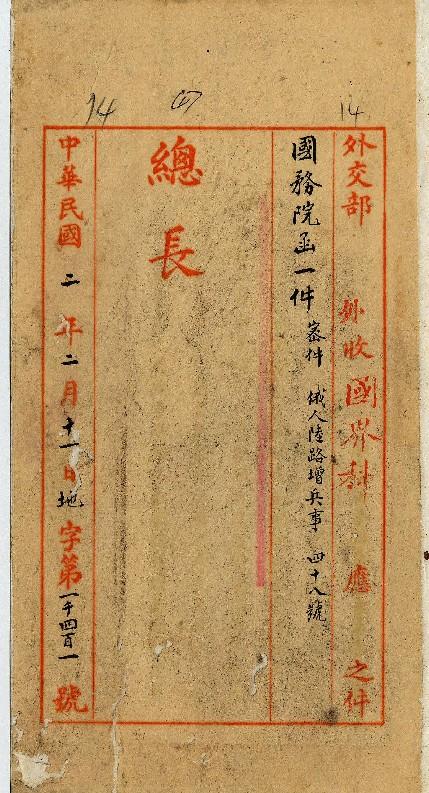 14
(4)
14
外交部 外收國界科 應 之件
國務院函一件 密件 俄人陸路增兵事 四十八號
總長
中華民國 二 年 二 月 十一 日 地 字第 一千四百一 號